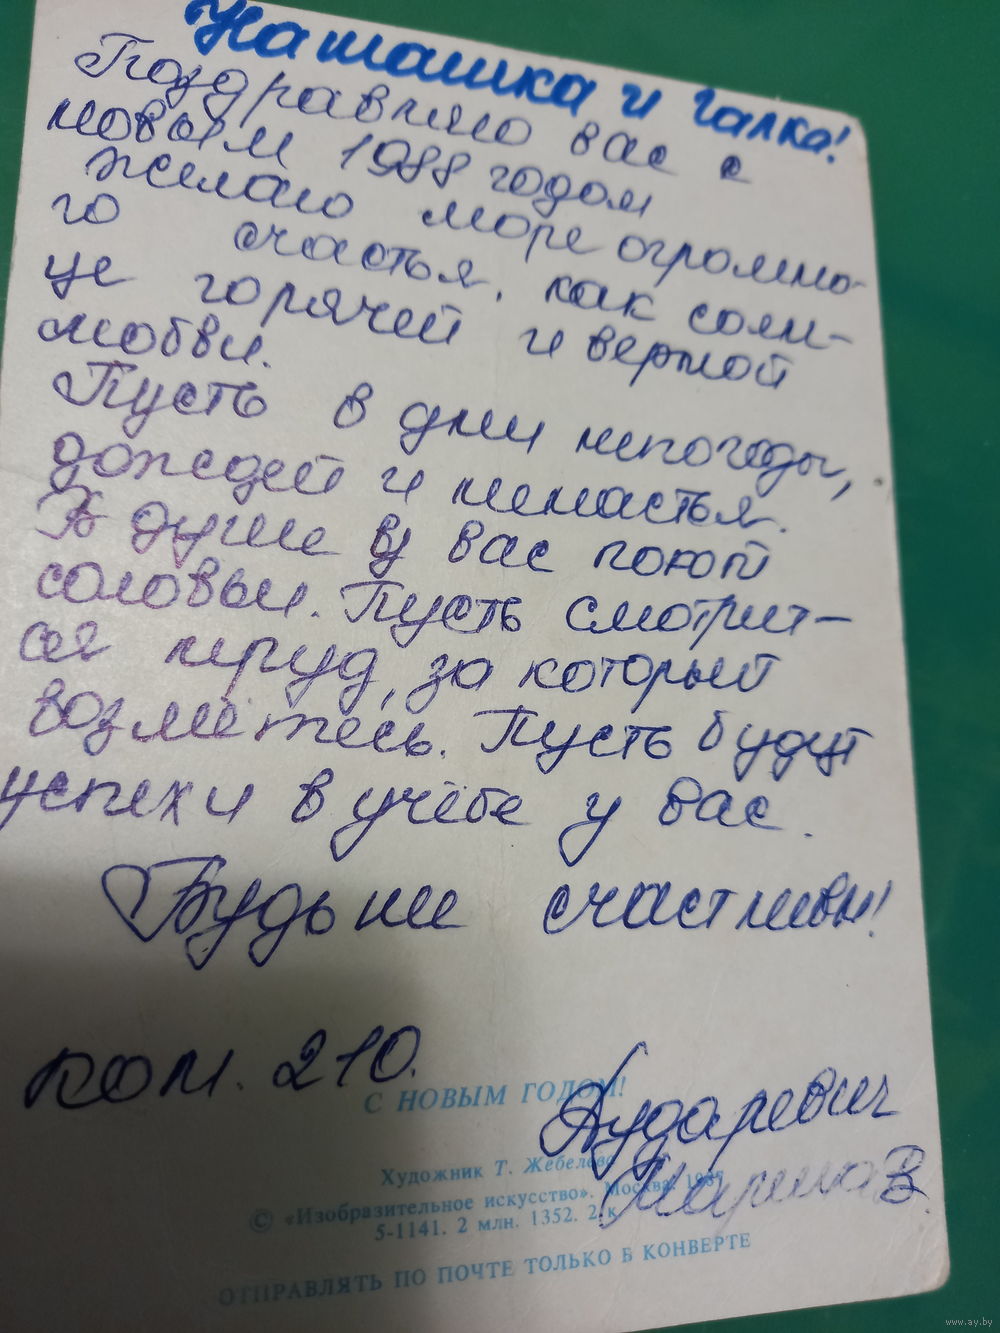 Наташка и Галка!
Поздравляю вас с
новым 1988 годом
желаю море огромно-
го счастья, как солн-
це горячей и верной
любви.
Пусть в дни непогоды,
дождей и ненастья.
В душе у вас поют
соловьи. Пусть смотрит-
ся труд, за который
возмётесь. Пусть будут
успехи в учёбе у вас.
Будьте счастливы!
ком. 210.
С НОВЫМ ГОДОМ!
Марина В.
Художник Т. Жебелева
© «Изобразительное искусство». Москва. 1987
5-1141. 2 млн. 1352. 2 к.
ОТПРАВЛЯТЬ ПО ПОЧТЕ ТОЛЬКО В КОНВЕРТЕ
www.ay.by